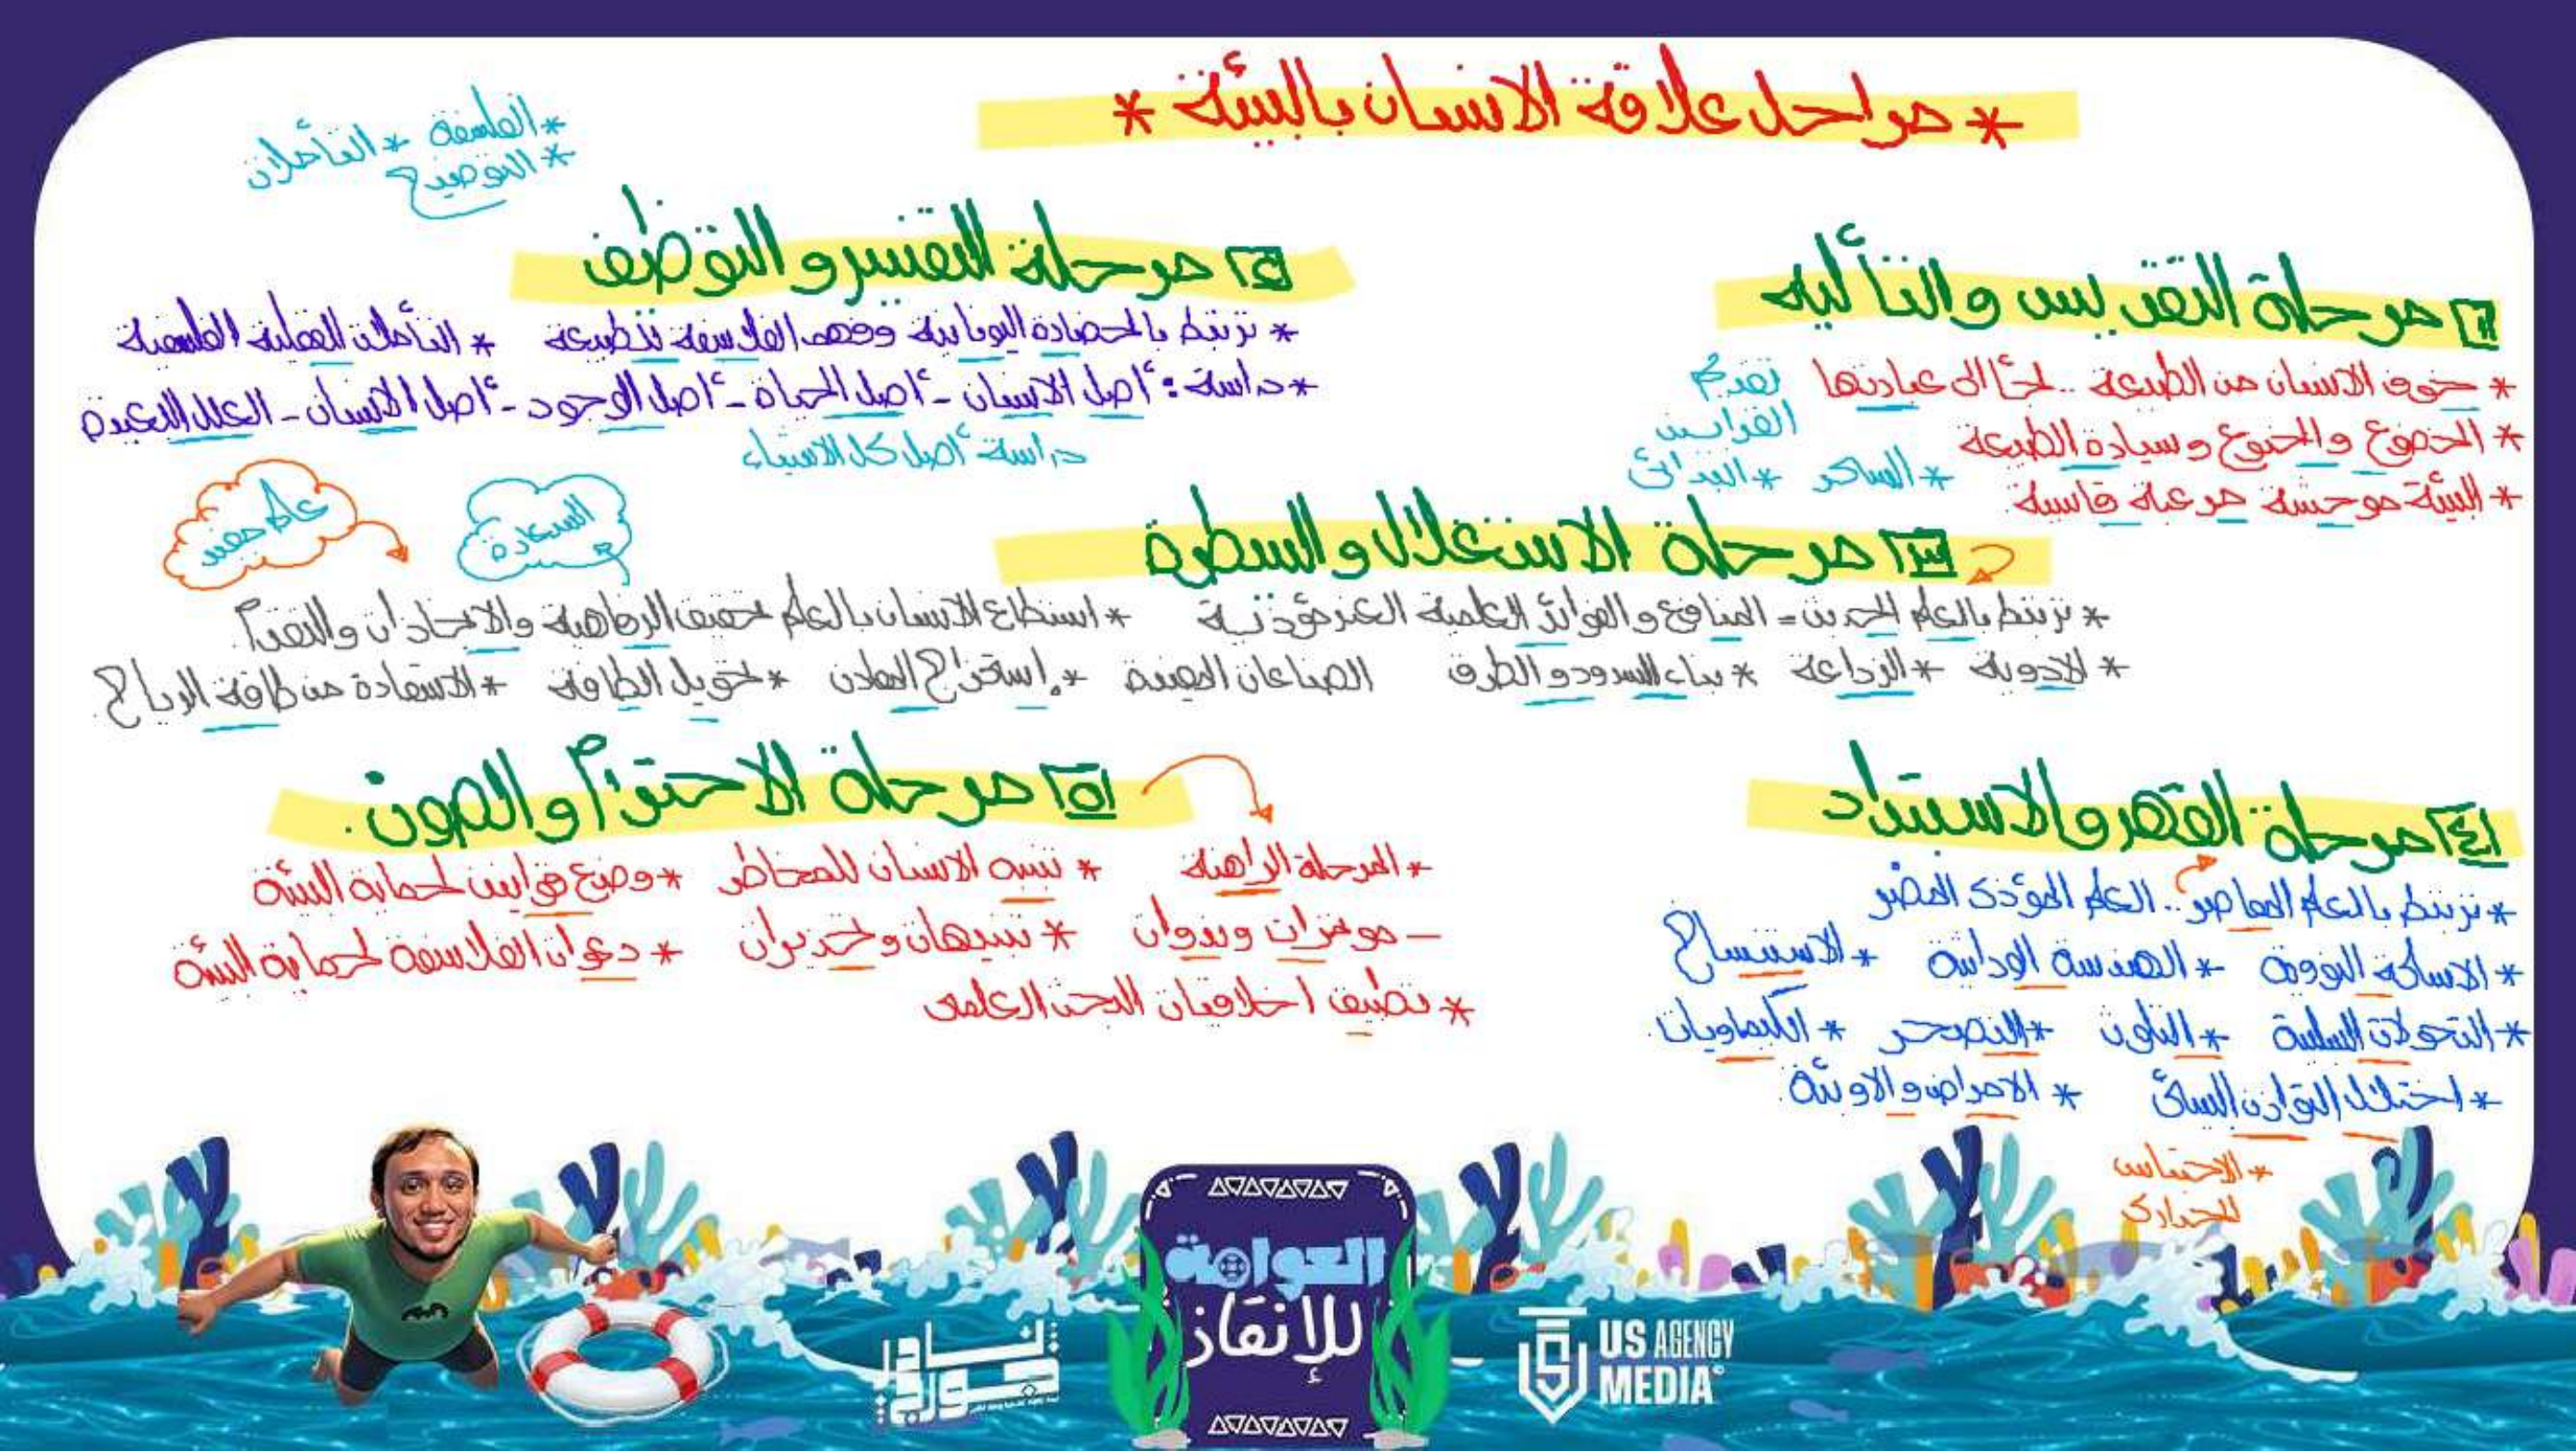 * مراحل علاقة الانسان بالبيئة *
١ مرحلة التقديس والتأليه
* خوف الانسان من الطبيعة .. لجأ الى عبادتها
تقديم القرابين
* الخضوع والخنوع وسيادة الطبيعة
* الساكر * البدائى
* البيئة موحشة مرعبة قاسية
* الفلسفة * التأملات
* التوضيح
٢ مرحلة التفسير والتوظيف
* ترتبط بالحضارة اليونانية وفهم الفلاسفة للطبيعة * التأملات العقلية الفلسفية
* دراسة : أصل الانسان - أصل الحياة - أصل الوجود - أصل الانسان - العلل البعيدة
دراسة أصل كل الاشياء
السعادة
علم مفيد
٣ مرحلة الاستغلال والسيطرة
* ترتبط بالعلم الحديث = المنافع والفوائد العلمية الغير مؤذية * استطاع الانسان بالعلم تحقيق الرفاهية والانجازات والتقدم.
* الادوية * الزراعة * بناء السدود والطرق الصناعات المفيدة * إستخراج المعادن * تحويل الطاقة * الاستفادة من طاقة الرياح.
٤ مرحلة القهر والاستبداد
* ترتبط بالعلم المعاصر .. العلم المؤذى المضر
* الاسلحة النووية * الهندسة الوراثية * الاستنساخ
* التحولات السلبية * التلوث * التصحر * الكيماويات
* اختلال التوازن البيئى * الامراض والاوبئة
* الاحتباس الحرارى
٥ مرحلة الاحترام والصون.
* المرحلة الراهنة * تنبه الانسان للمخاطر * وضع قوانين لحماية البيئة
- مؤتمرات وندوات * تنبيهات وتحذيرات * دعوات الفلاسفة لحماية البيئة
* تطبيق اخلاقيات البحث العلمى
العوامة
للإنقاذ
US AGENCY
MEDIA